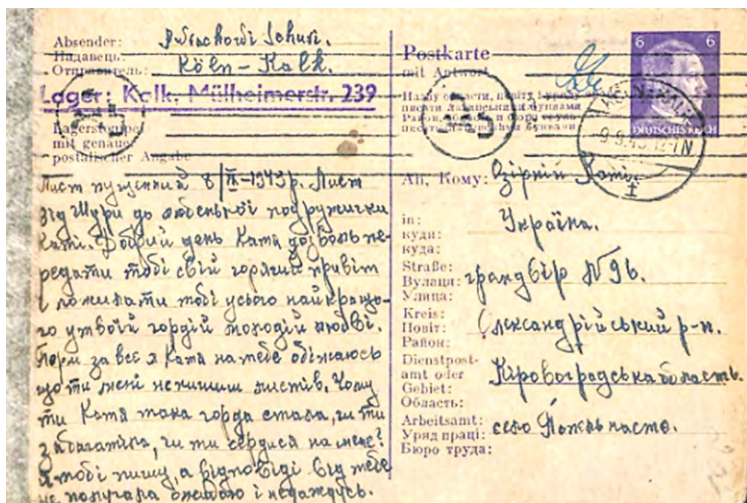 Absender:
Надавець:
Отправитель:
Schuri.
Köln-Kalk.
Lager: Kalk, Mülheimerstr. 239
Lagerstempel
mit genauer
postalischer Angabe
Лист пущений 8/IX-1943р. Лист
від Шури до любенької подружички
Каті. Добрий день Катя дозволь пе-
редати тобі свій горячий привіт
і пожилати тобі усього найкращо-
го у твоїй гордій молодій любві.
Перш за все я Катя на тебе обіжаюсь
що ти мені непишиш листів. Чому
ти Катя така горда стала, чи ти
забагатіла, чи ти сердися на мене?
Я тобі пишу, а відповіді від тебе
не получала ожидаю і недаждусь.
Postkarte
mit Antwort
6 6
DEUTSCHES REICH
KÖLN-KALK
9.9.43.12-7N
An, Кому: Зірній Каті.
in:
куди:
куда:
Україна.
Straße:
Вулиця:
Улица:
грандвір N 96.
Kreis:
Повіт:
Район:
Олександрійський р-н.
Dienstpost-
amt oder
Gebiet:
Область:
Кіровоградська область.
Arbeitsamt:
Уряд праці:
Бюро труда:
село